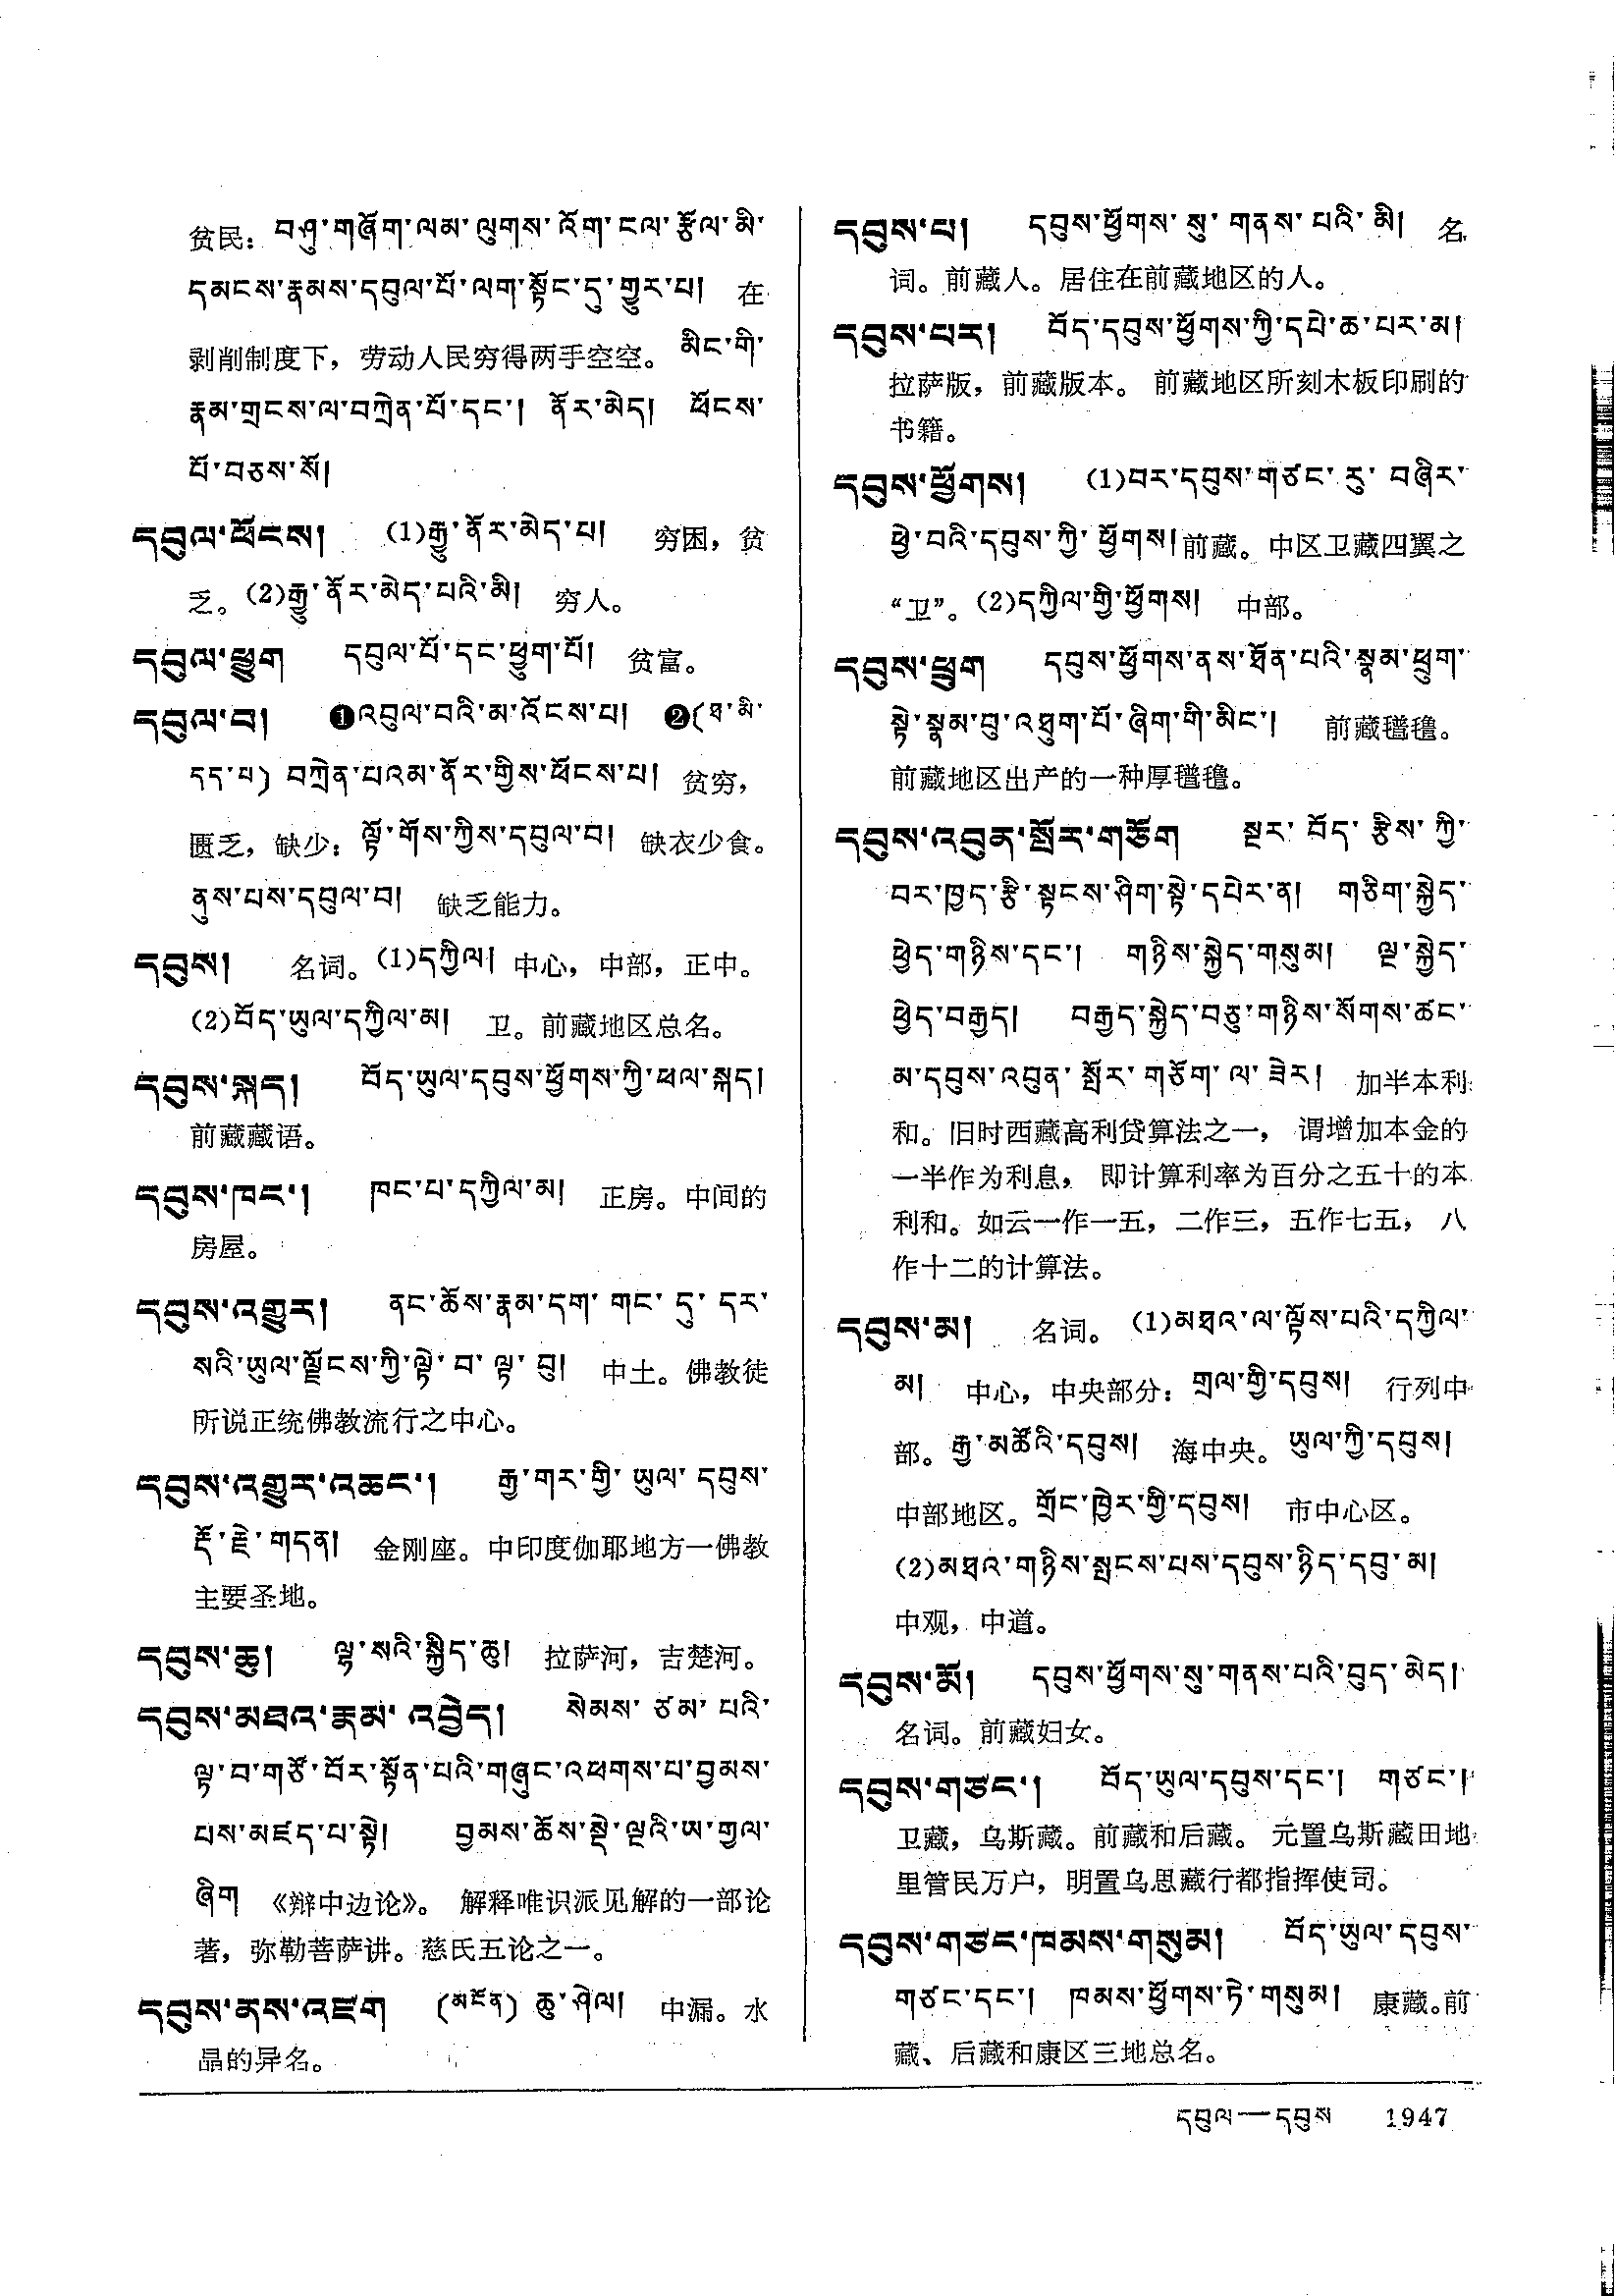 贫民：བཤུ་གཞོག་ལམ་ལུགས་འོག་ངལ་རྩོལ་མི་
དམངས་རྣམས་དབུལ་པོ་ལག་སྟོང་དུ་གྱུར་པ། 在
剥削制度下，劳动人民穷得两手空空。མིང་གི་
རྣམ་གྲངས་ལ་བཀྲེན་པོ་དང་། ནོར་མེད། ཕོངས་
པོ་བཅས་སོ།
དབུལ་ཕོངས། (1)རྒྱུ་ནོར་མེད་པ། 穷困，贫
乏。(2)རྒྱུ་ནོར་མེད་པའི་མི། 穷人。
དབུལ་ཕྱུག དབུལ་པོ་དང་ཕྱུག་པོ། 贫富。
དབུལ་བ། ❶འབུལ་བའི་མ་འོངས་པ། ❷(ཐ་མི་
དད་པ) བཀྲེན་པའམ་ནོར་གྱིས་ཕོངས་པ། 贫穷，
匮乏，缺少：ལྟོ་གོས་ཀྱིས་དབུལ་བ། 缺衣少食。
ནུས་པས་དབུལ་བ། 缺乏能力。
དབུས། 名词。(1)དཀྱིལ། 中心，中部，正中。
(2)བོད་ཡུལ་དཀྱིལ་མ། 卫。前藏地区总名。
དབུས་སྐད། བོད་ཡུལ་དབུས་ཕྱོགས་ཀྱི་ཕལ་སྐད།
前藏藏语。
དབུས་ཁང་། ཁང་པ་དཀྱིལ་མ། 正房。中间的
房屋。
དབུས་འགྱུར། ནང་ཆོས་རྣམ་དག་གང་དུ་དར་
སའི་ཡུལ་ལྗོངས་ཀྱི་ལྟེ་བ་ལྟ་བུ། 中土。佛教徒
所说正统佛教流行之中心。
དབུས་འགྱུར་འཆང་། རྒྱ་གར་གྱི་ཡུལ་དབུས་
རྡོ་རྗེ་གདན། 金刚座。中印度伽耶地方一佛教
主要圣地。
དབུས་ཆུ། ལྷ་སའི་སྐྱིད་ཆུ། 拉萨河，吉楚河。
དབུས་མཐའ་རྣམ་འབྱེད། སེམས་ཙམ་པའི་
ལྟ་བ་གཙོ་བོར་སྟོན་པའི་གཞུང་འཕགས་པ་བྱམས་
པས་མཛད་པ་སྟེ། བྱམས་ཆོས་སྡེ་ལྔའི་ཨ་གྱལ་
ཞིག 《辩中边论》。解释唯识派见解的一部论
著，弥勒菩萨讲。慈氏五论之一。
དབུས་ནས་འཛག (མངོན) ཆུ་ཤེལ། 中漏。水
晶的异名。
དབུས་པ། དབུས་ཕྱོགས་སུ་གནས་པའི་མི། 名
词。前藏人。居住在前藏地区的人。
དབུས་པར། བོད་དབུས་ཕྱོགས་ཀྱི་དཔེ་ཆ་པར་མ།
拉萨版，前藏版本。前藏地区所刻木板印刷的
书籍。
དབུས་ཕྱོགས། (1)བར་དབུས་གཙང་རུ་བཞིར་
ཕྱེ་བའི་དབུས་ཀྱི་ཕྱོགས། 前藏。中区卫藏四翼之
“卫”。(2)དཀྱིལ་གྱི་ཕྱོགས། 中部。
དབུས་ཕྲུག དབུས་ཕྱོགས་ནས་ཐོན་པའི་སྣམ་ཕྲུག་
སྟེ་སྣམ་བུ་འཐུག་པོ་ཞིག་གི་མིང་། 前藏氆氇。
前藏地区出产的一种厚氆氇。
དབུས་འབུན་སྤྲོར་གཙོག སྔར་བོད་རྩིས་ཀྱི་
བར་ཁྱད་རྩི་སྟངས་ཤིག་སྟེ་དཔེར་ན། གཅིག་སྐྱེད་
ཕྱེད་གཉིས་དང་། གཉིས་སྐྱེད་གསུམ། ལྔ་སྐྱེད་
ཕྱེད་བརྒྱད། བརྒྱད་སྐྱེད་བཅུ་གཉིས་སོགས་ཚང་
མ་དབུས་འབུན་སྤྲོར་གཙོག་ལ་ཟེར། 加半本利
和。旧时西藏高利贷算法之一，谓增加本金的
一半作为利息，即计算利率为百分之五十的本
利和。如云一作一五，二作三，五作七五，八
作十二的计算法。
དབུས་མ། 名词。(1)མཐའ་ལ་ལྟོས་པའི་དཀྱིལ་
མ། 中心，中央部分：གྲལ་གྱི་དབུས། 行列中
部。རྒྱ་མཚོའི་དབུས། 海中央。ཡུལ་ཀྱི་དབུས།
中部地区。གྲོང་ཁྱེར་གྱི་དབུས། 市中心区。
(2)མཐའ་གཉིས་སྤངས་པས་དབུས་ཉིད་དབུ་མ།
中观，中道。
དབུས་མོ། དབུས་ཕྱོགས་སུ་གནས་པའི་བུད་མེད།
名词。前藏妇女。
དབུས་གཙང་། བོད་ཡུལ་དབུས་དང་། གཙང་།
卫藏，乌斯藏。前藏和后藏。元置乌斯藏田地
里管民万户，明置乌思藏行都指挥使司。
དབུས་གཙང་ཁམས་གསུམ། བོད་ཡུལ་དབུས་
གཙང་དང་། ཁམས་ཕྱོགས་ཏེ་གསུམ། 康藏。前
藏、后藏和康区三地总名。
དབུལ—དབུས 1947